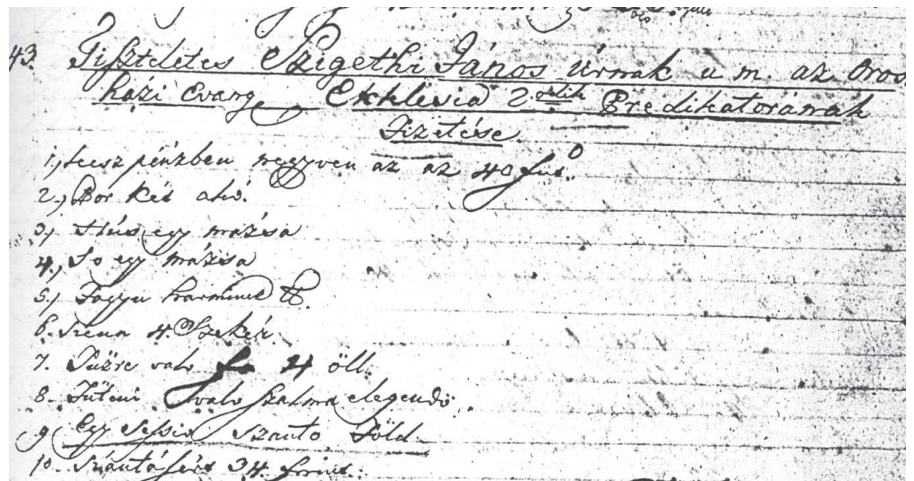 43. Tiszteletes Szigethi János Úrnak u m. az Oros
házi Evang Ekklesia 2 dik Prédikátorának
Fizetése
1, Kész pénzben negyven az az 40 for.
2, Bor két akó.
3, Hús egy mázsa
4, Só egy mázsa
5, Fagyu harmincz ℔.
6. Széna 4. Szekér.
7. Tüzre való fa 4 öll.
8. Fűteni való szalma elegendő.
9 Egy Sessio Szántó Föld.
10. Szántásért 34. forint.